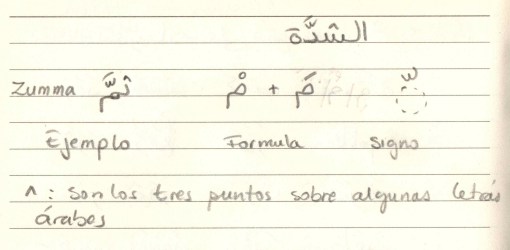 الشدَّة
Zumma ثمَّ مْ + مَ ّ
Ejemplo Formula Signo
^ : Son los tres puntos sobre algunas letras
árabes